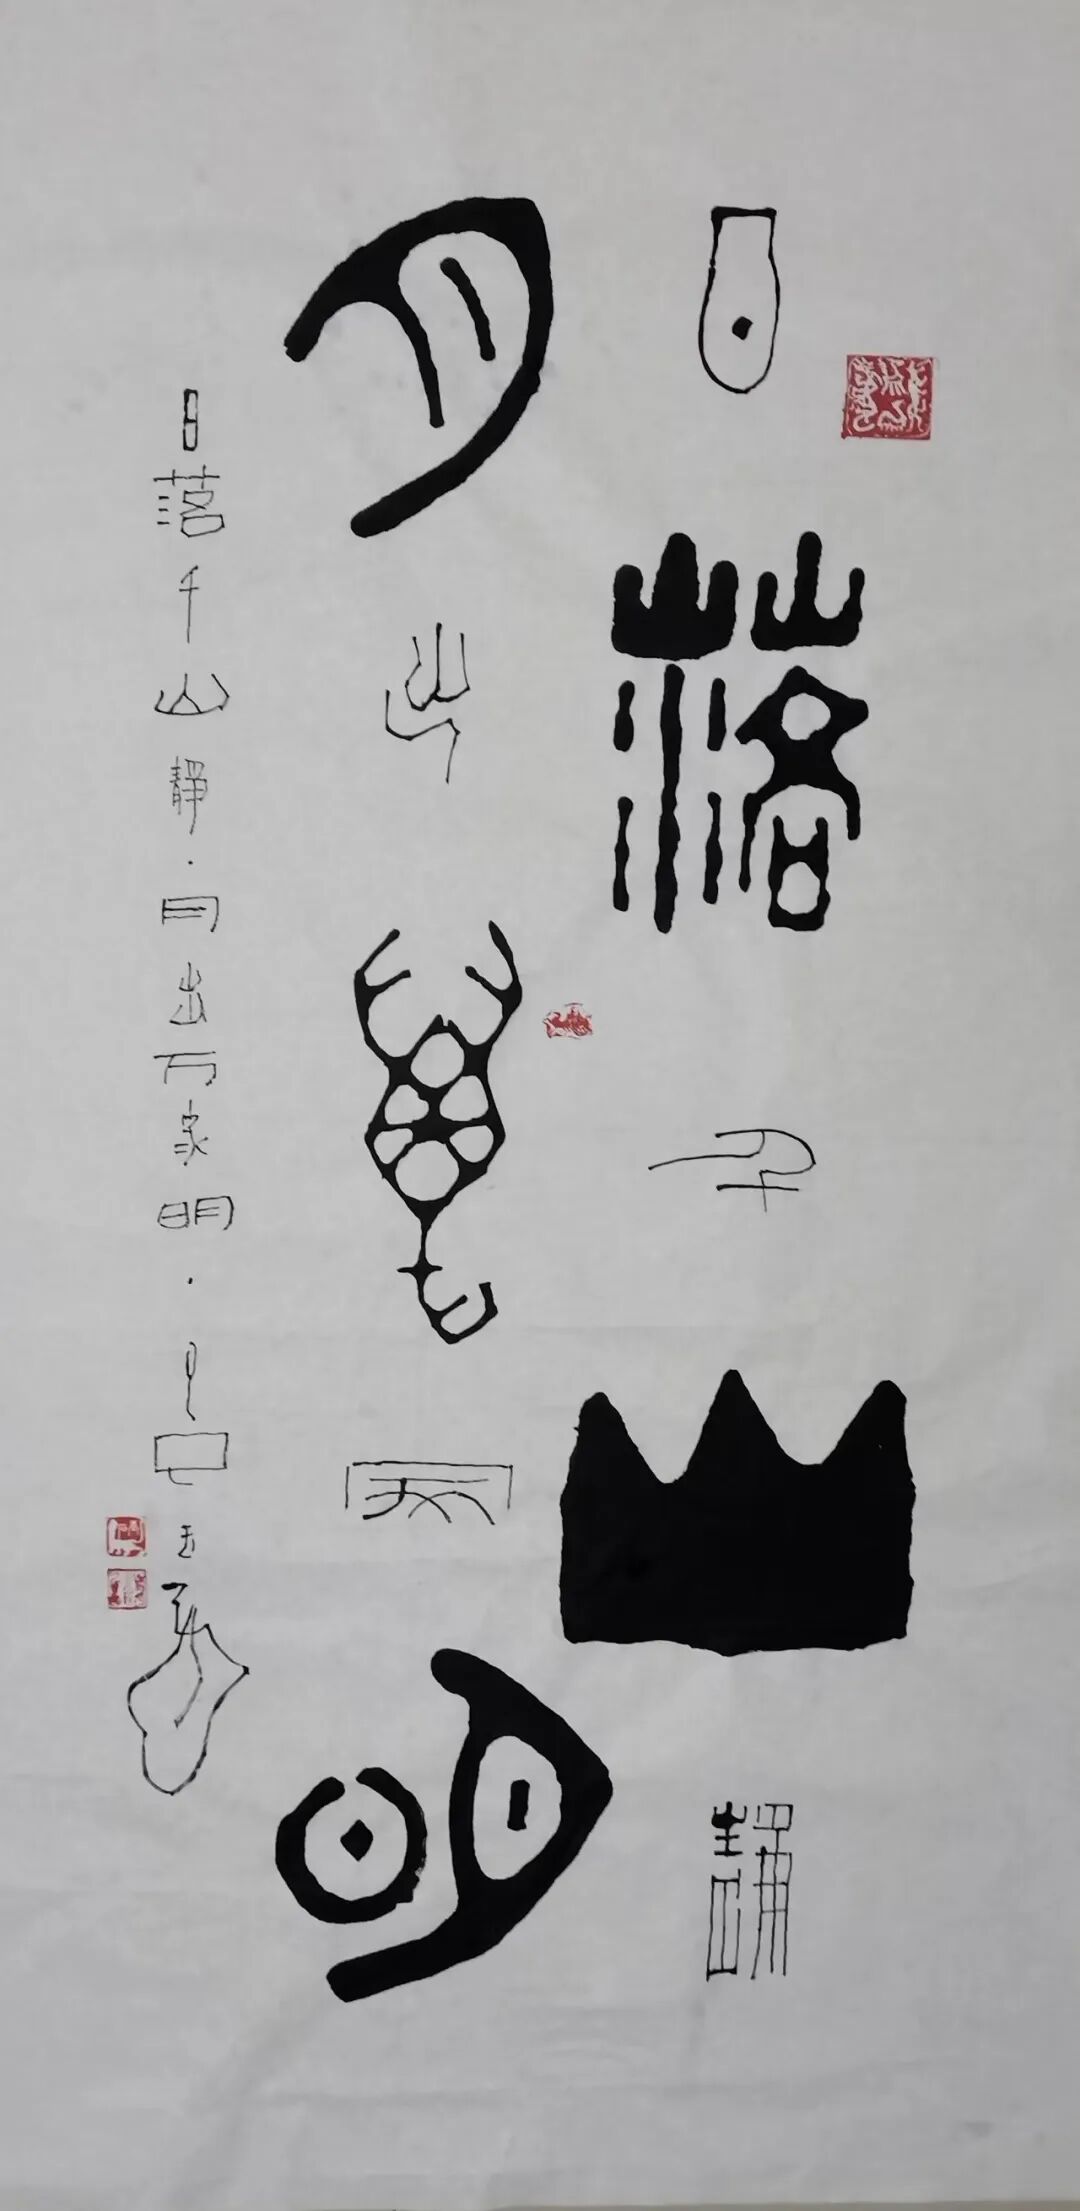 日落千山靜
月出萬家明
日落千山靜·月出万家明·